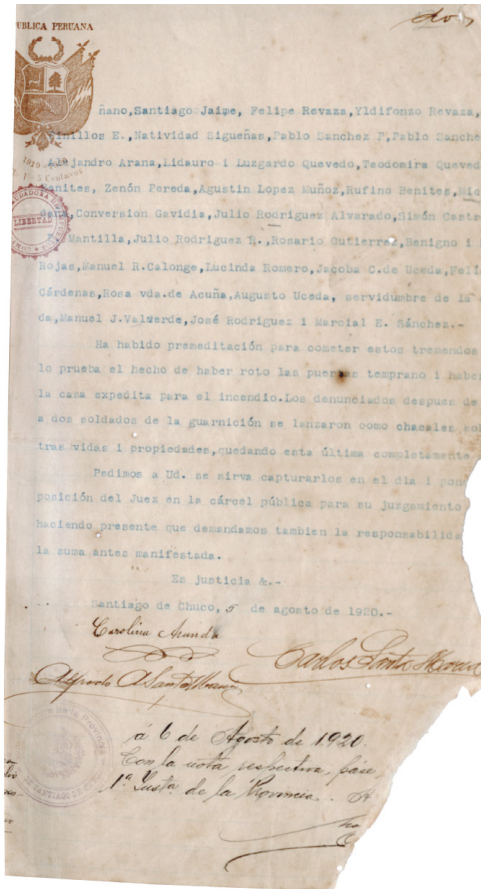 dos
PUBLICA PERUANA
ñano,Santiago Jaime, Felipe Revaza,Yldifonzo Revaza,
Sinillos E.,Natividad Sigueñas,Pablo Sanchez P,Pablo Sanche
Alejandro Arana,Lidauro i Luzgardo Quevedo,Teodomira Queved
Benites, Zenón Pereda,Agustin Lopez Muñoz,Rufino Benites,
Conversion Gavidia, Julio Rodriguez Alvarado,Simón Cast
Mantilla,Julio Rodriguez R.,Rosario Gutierrez,Benigno i
Rojas,Manuel R.Calonge,Lucinda Romero,Jacoba C.de Uceda,Feli
Cárdenas,Rosa vda.de Acuña,Augusto Uceda, servidumbre de
da,Manuel J.Valverde,José Rodriguez i Marcial E. Sánchez.-
Ha habido premeditación para cometer estos tremendos
lo prueba el hecho de haber roto las puertas temprano i haber
la casa expedita para el incendio.Los denunciados despues de
a dos soldados de la guarnición se lanzaron como chacales so
tras vidas i propiedades,quedando esta última completamente
Pedimos a Ud. se sirva capturarlos en el dia i pon
posición del Juez en la cárcel pública para su juzgamiento
haciendo presente que demandamos tambien la responsabilida
la suma antes manifestada.
Es justicia &.-
Santiago de Chuco, 5 de agosto de 1920.-
Carolina Aranda
Carlos Santa María
Alfredo A Santa María
á 6 de Agosto de 1920.
Con la nota respectiva, pase,
de la Provincia.
LIBERTAD